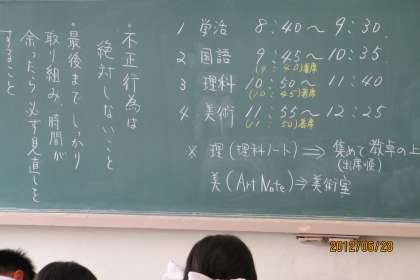 ・不正行為は
絶対しないこと
・最後までしっかり
取り組み、時間が
余ったら必ず見直しを
すること
1 学活 8:40〜9:30
2 国語 9:45〜10:35
(9:40)着席
3 理科 10:50〜11:40
(10:45)着席
4 美術 11:55〜12:25
(11:50)着席
※ 理(理科ノート)⇒集めて教卓の上
(出席順)
美(Art Note)⇒美術室
2012/06/28